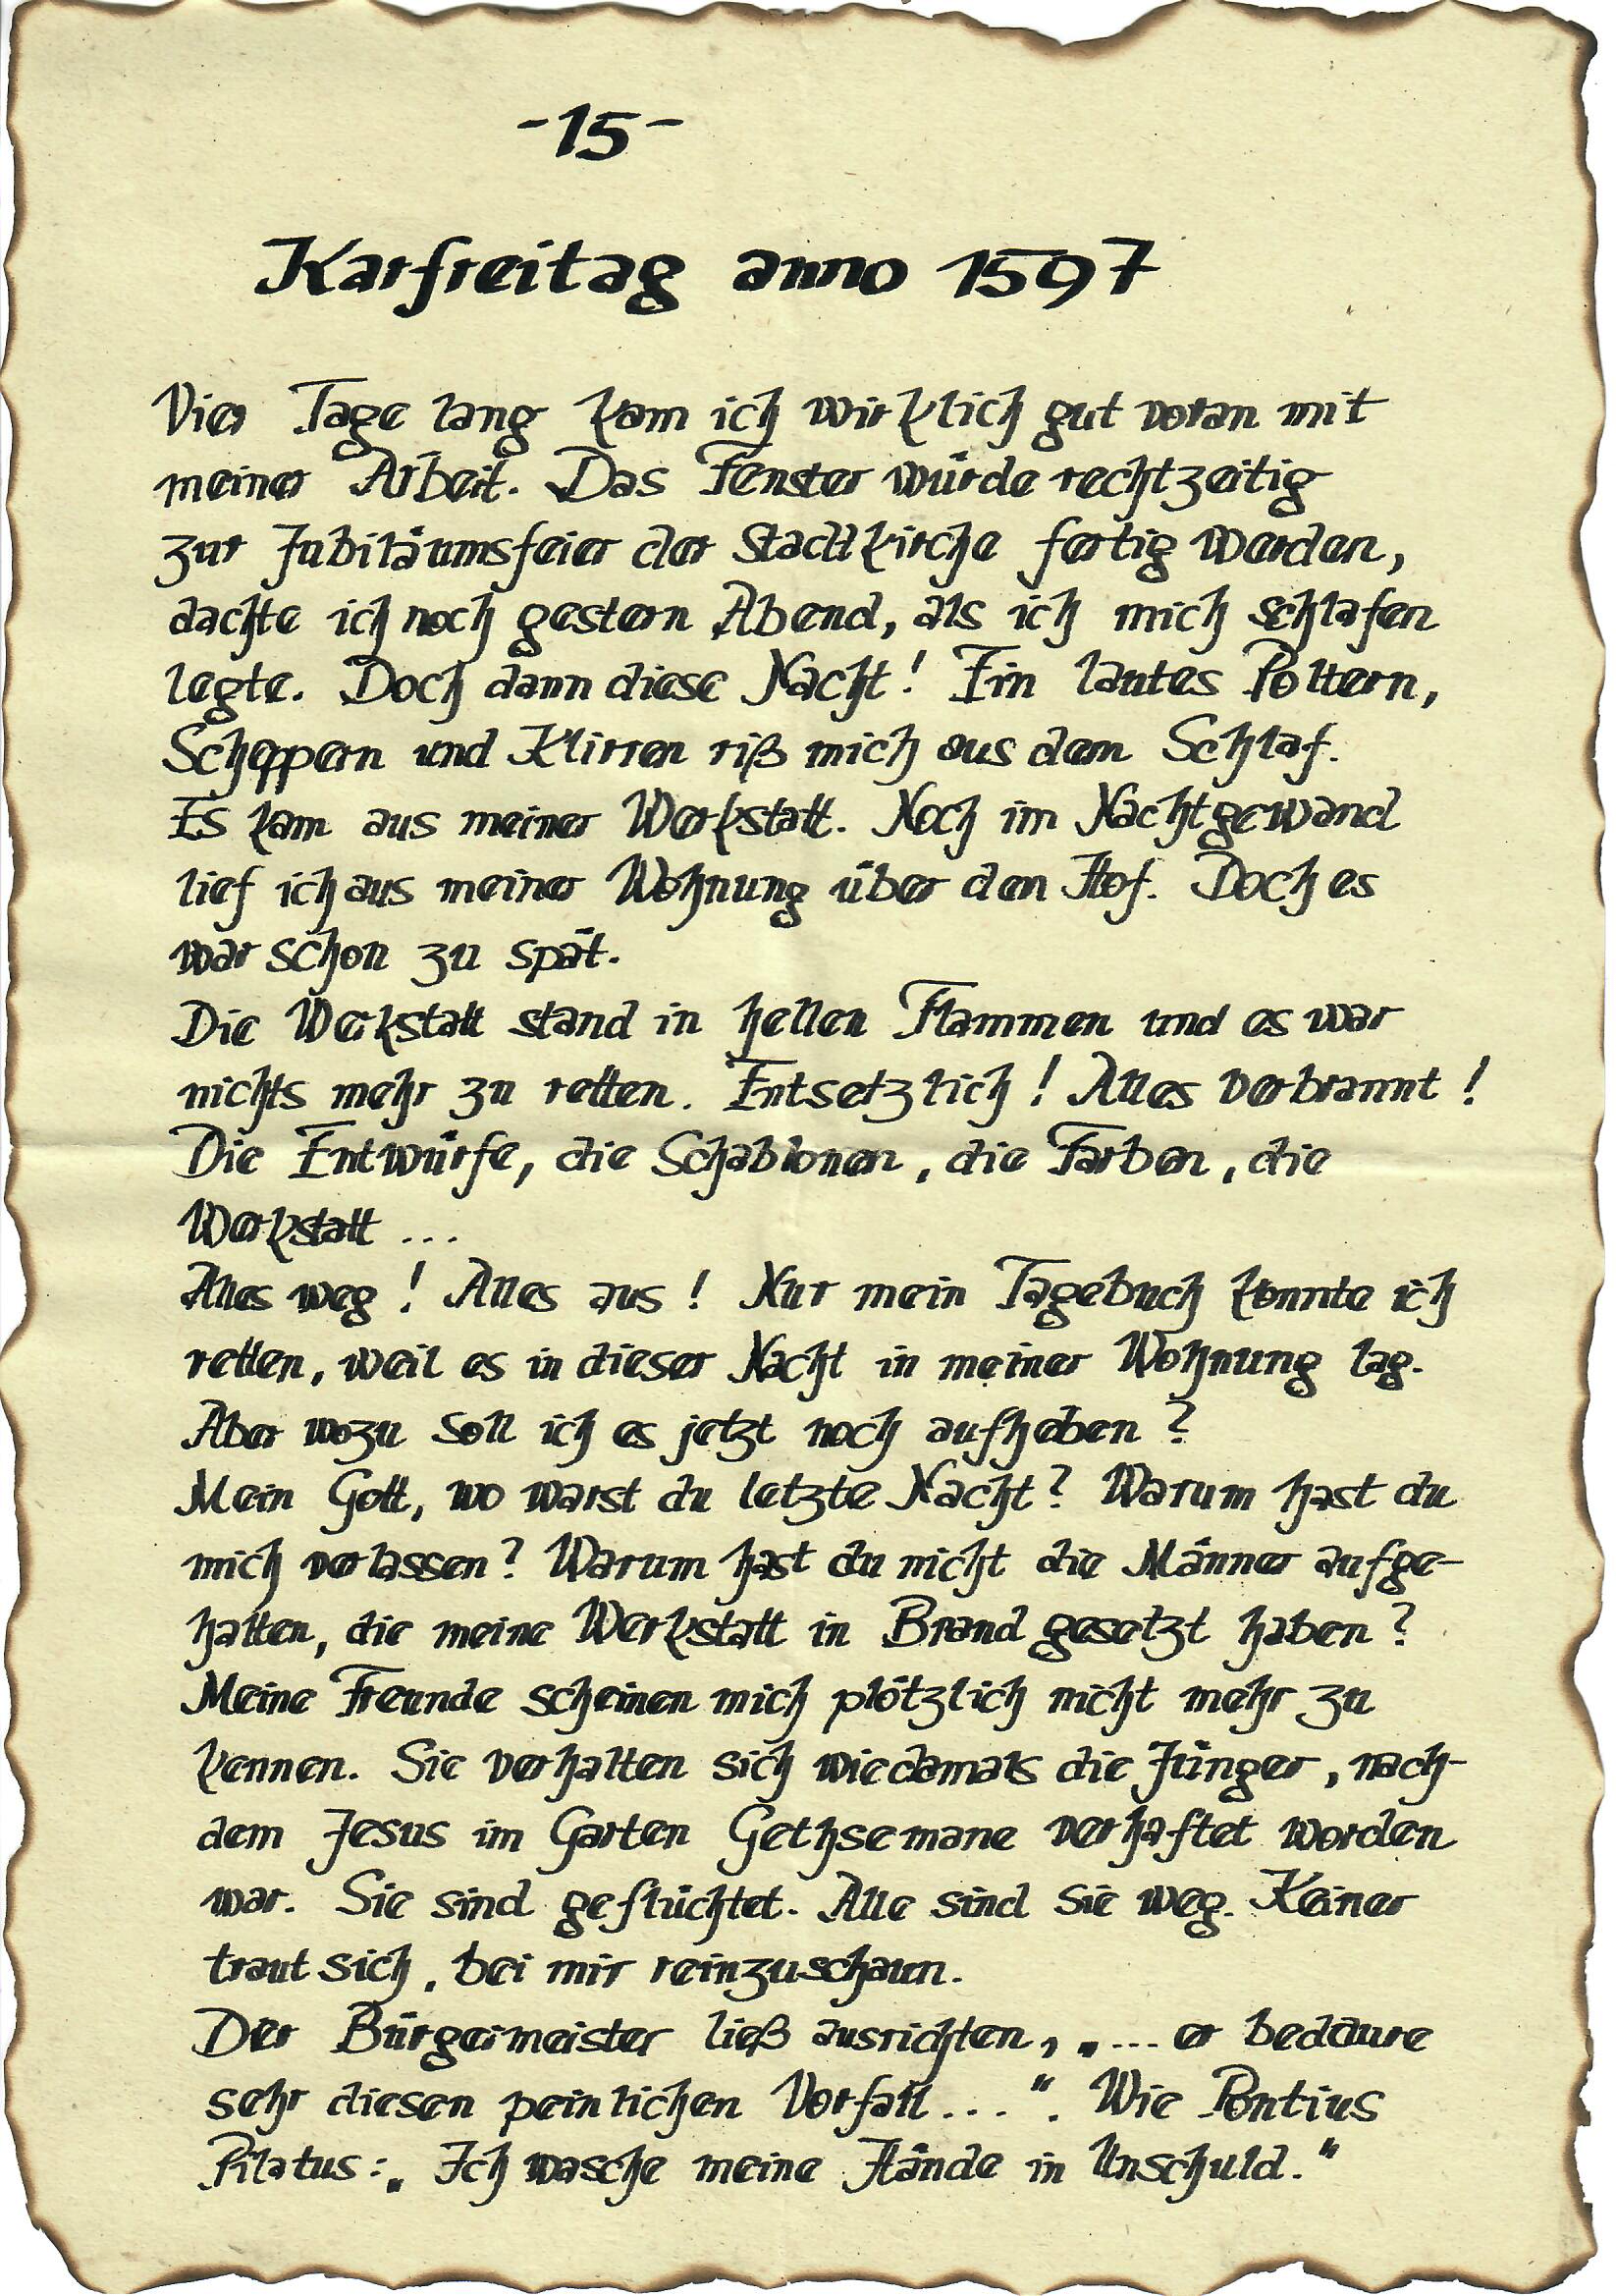 -15-
Karfreitag anno 1597
Vier Tage lang kam ich wirklich gut voran mit
meiner Arbeit. Das Fenster würde rechtzeitig
zur Jubiläumsfeier der Stadtkirche fertig werden,
dachte ich noch gestern Abend, als ich mich schlafen
legte. Doch dann diese Nacht! Ein lautes Poltern,
Scheppern und Klirren riß mich aus dem Schlaf.
Es kam aus meiner Werkstatt. Noch im Nachtgewand
lief ich aus meiner Wohnung über den Hof. Doch es
war schon zu spät.
Die Werkstatt stand in hellen Flammen und es war
nichts mehr zu retten. Entsetzlich! Alles verbrannt!
Die Entwürfe, die Schablonen, die Farben, die
Werkstatt ...
Alles weg! Alles aus! Nur mein Tagebuch konnte ich
retten, weil es in dieser Nacht in meiner Wohnung lag.
Aber wozu soll ich es jetzt noch aufheben?
Mein Gott, wo warst du letzte Nacht? Warum hast du
mich verlassen? Warum hast du nicht die Männer aufge-
halten, die meine Werkstatt in Brand gesetzt haben?
Meine Freunde scheinen mich plötzlich nicht mehr zu
kennen. Sie verhalten sich wie damals die Jünger, nach-
dem Jesus im Garten Gethsemane verhaftet worden
war. Sie sind geflüchtet. Alle sind sie weg. Keiner
traut sich, bei mir reinzuschaun.
Der Bürgermeister ließ ausrichten, „... er bedaure
sehr diesen peinlichen Vorfall...“. Wie Pontius
Pilatus: „Ich wasche meine Hände in Unschuld.“